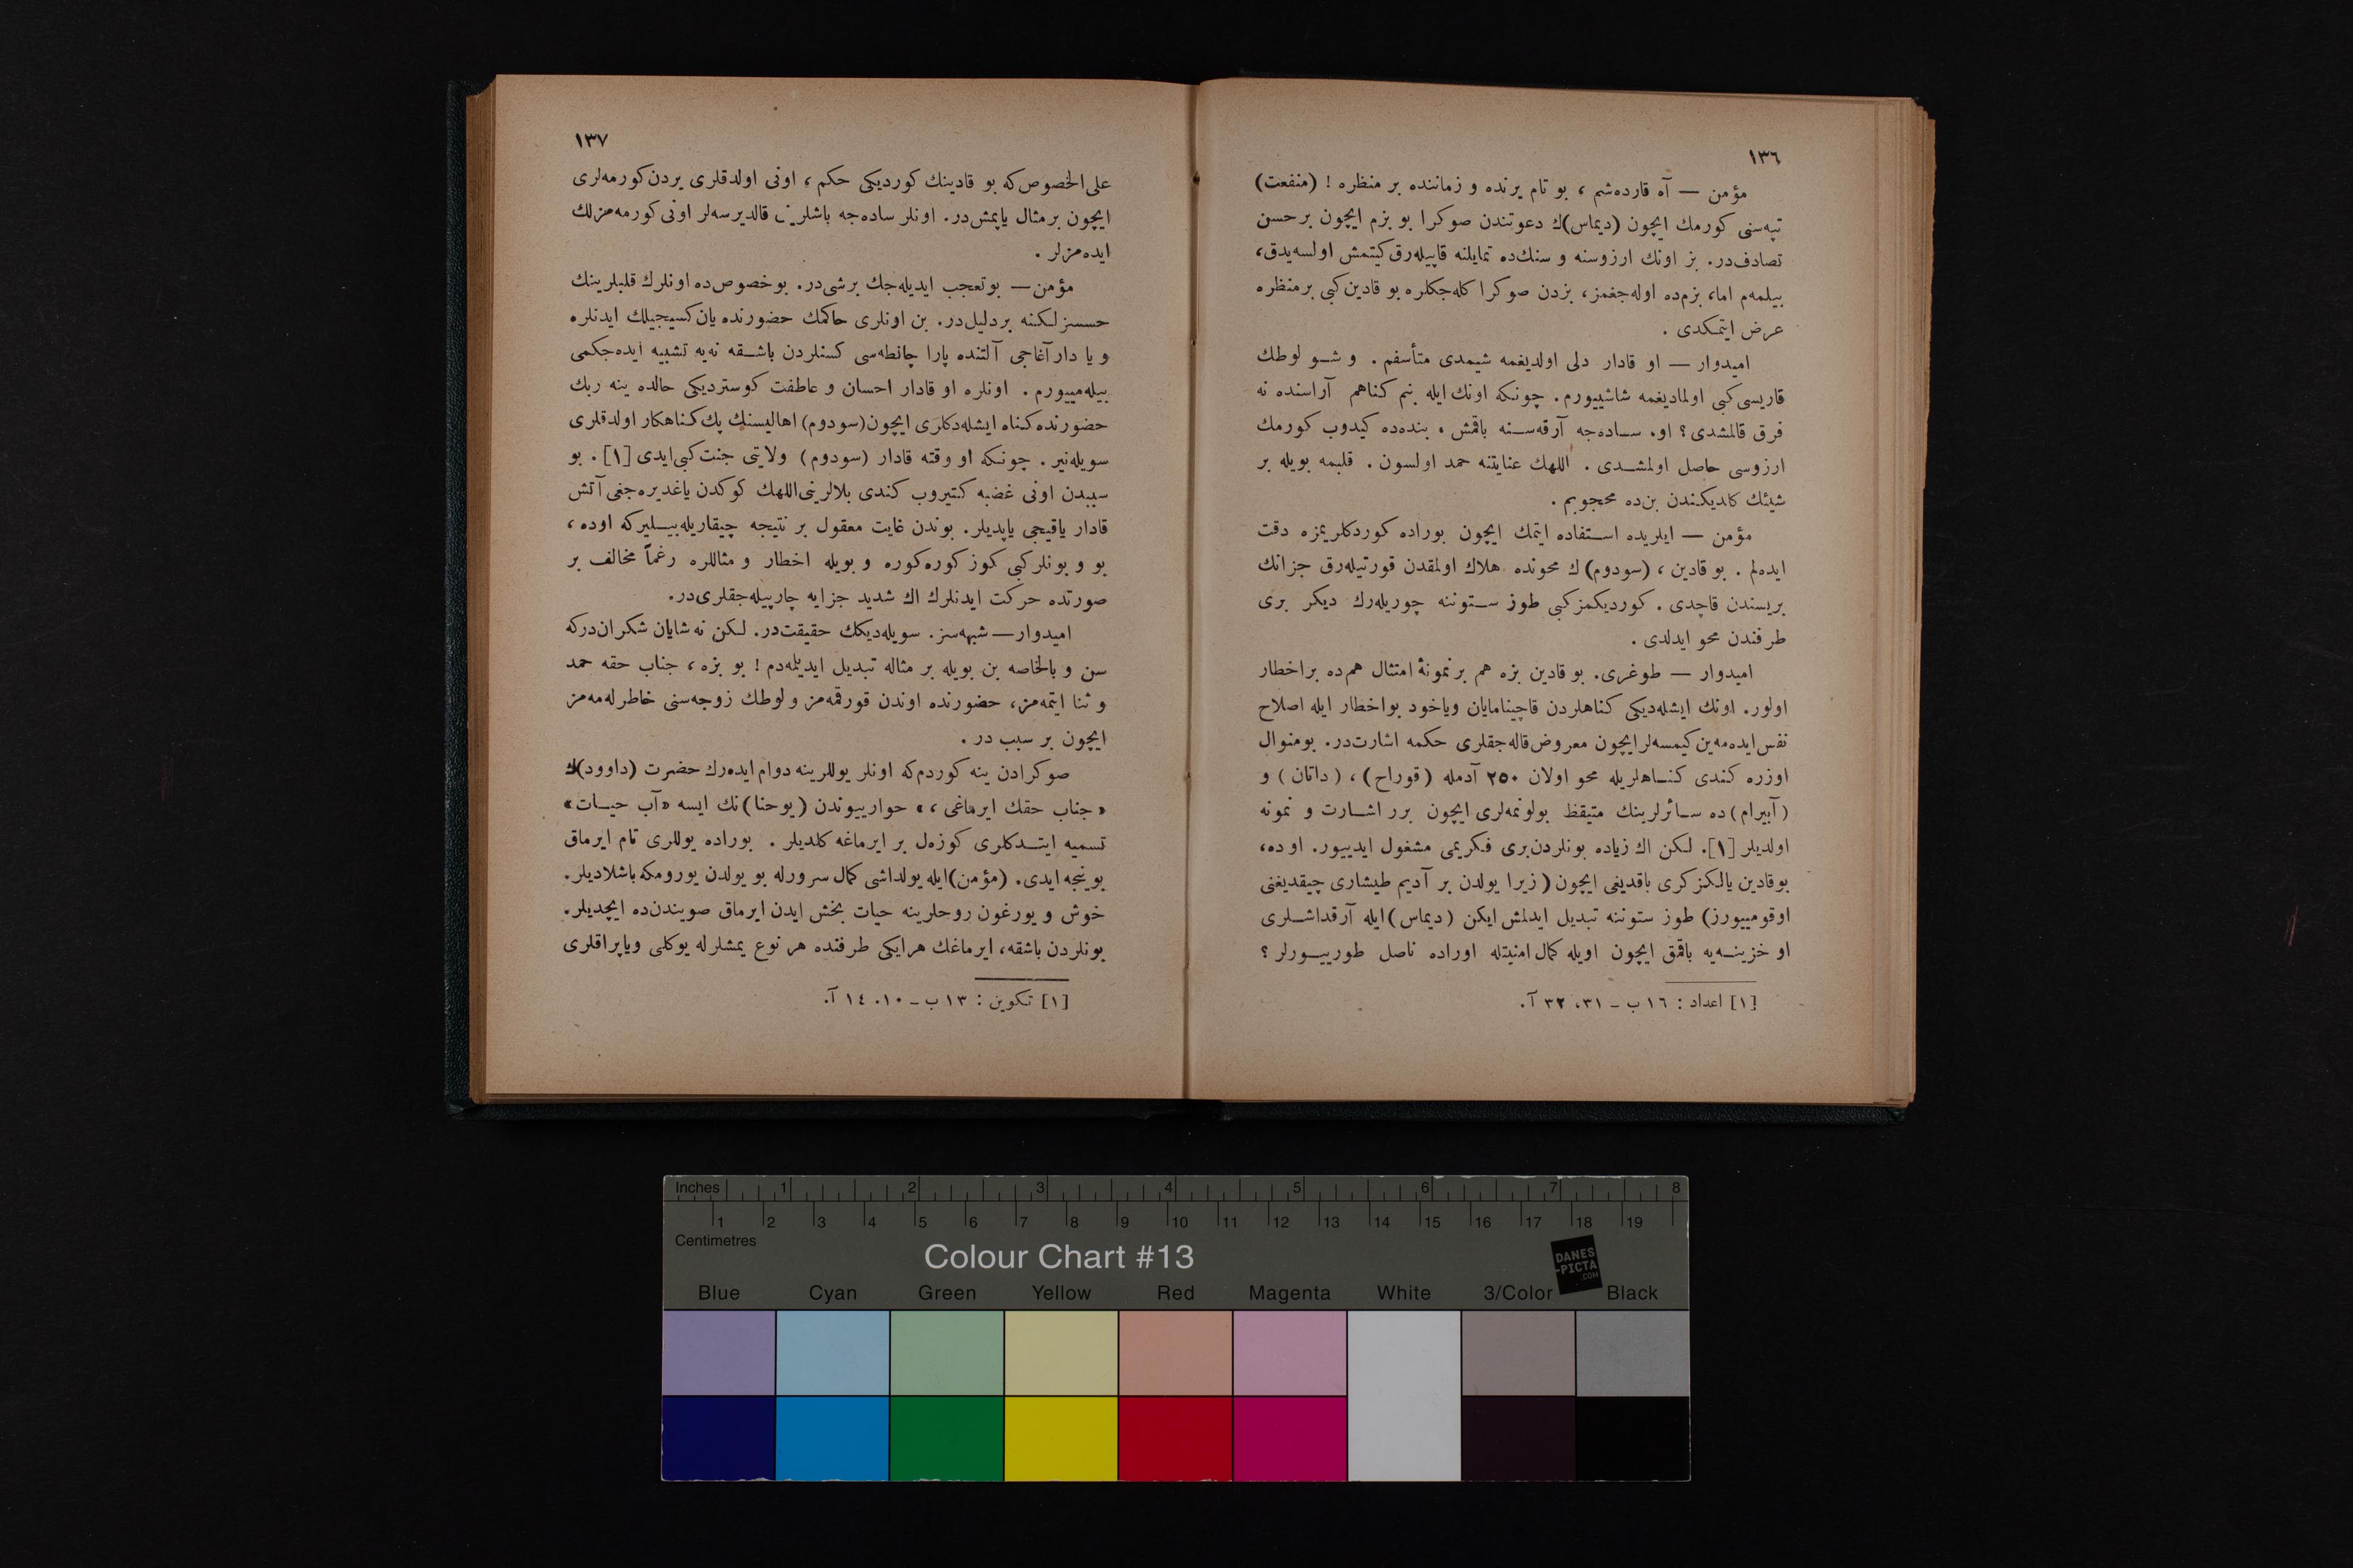 ١٣٦
مؤمن — آه قارده‌شم ، بو تام يرنده و زماننده بر منظره ! (منفعت)
تپه‌سنى كورمك ايچون (ديماس)ك دعوتندن صوكرا بو بزم ايچون برحسن
تصادف‌در. بز اونك ارزوسنه و سنك‌ده تمايلنه قاپيله‌رق كيتمش اولسه‌يدق،
بيلمه‌م اما، بزم‌ده اوله‌جغمز، بزدن صوكرا كله‌جكلره بو قادين كبى برمنظره
عرض ايتمكدى .
اميدوار — او قادار دلى اولديغمه شيمدى متأسفم . و شو لوطك
قاريسى كبى اولماديغمه شاشييورم. چونكه اونك ايله بنم كناهم آراسنده نه
فرق قالمشدى؟ او، ساده‌جه آرقه‌سنه باقمش ، بنده‌ده كيدوب كورمك
ارزوسى حاصل اولمشدى . اللهك عنايتنه حمد اولسون . قلبمه بويله بر
شيئك كلديكندن بن‌ده محجوبم .
مؤمن — ايلريده استفاده ايتمك ايچون بوراده كوردكلريمزه دقت
ايده‌لم . بو قادين ، (سودوم)ك محونده هلاك اولمقدن قورتيله‌رق جزانك
بريسندن قاچدى . كورديكمزكبى طوز ستوننه چوريله‌رك ديكر برى
طرفندن محو ايدلدى .
اميدوار — طوغرى. بو قادين بزه هم برنمونهٔ امتثال هم‌ده براخطار
اولور. اونك ايشله‌ديكى كناهلردن قاچينامايان وياخود بواخطار ايله اصلاح
نفس ايده‌مه‌ين كيمسه‌لرايچون معروض قاله‌جقلرى حكمه اشارت‌در. بومنوال
اوزره كندى كناهلريله محو اولان ٢٥٠ آدمله (قوراح) ، (داتان) و
(آبيرام)ده سائرلرينك متيقظ بولونمه‌لرى ايچون برر اشارت و نمونه
اولديلر [١]. لكن اك زياده بونلردن‌برى فكريمى مشغول ايدييور. او ده،
بوقادين يالكزكرى باقديغى ايچون ( زيرا يولدن بر آديم طيشارى چيقديغنى
اوقومييورز) طوز ستوننه تبديل ايدلمش ايكن (ديماس)ايله آرقداشلرى
او خزينه‌يه باقمق ايچون اويله كمال امنيتله اوراده ناصل طورييورلر ؟
[١] اعداد : ١٦ ب ـ ٣١، ٣٢ آ.
١٣٧
على‌الخصوص‌كه بو قادينك كورديكى حكم ، اونى اولدقلرى يردن كورمه‌لرى
ايچون برمثال ياپمش‌در. اونلر ساده‌جه باشلرين قالديرسه‌لر اونى كورمه‌مزلك
ايده‌مزلر .
مؤمن — بوتعجب ايديله‌جك برشى‌در. بوخصوص‌ده اونلرك قلبلرينك
حسسزلكنه بردليل‌در. بن اونلرى حاكمك حضورنده يان‌كسيجيلك ايدنلره
و يا دارآغاجى آلتنده پارا چانطه‌سى كسنلردن باشقه نه‌يه تشبيه ايده‌جكمى
بيله‌مييورم . اونلره او قادار احسان و عاطفت كوسترديكى حالده ينه ربك
حضورنده‌كناه ايشله‌دكلرى ايچون(سودوم) اهاليسنك پك‌كناهكار اولدقلرى
سويله‌نير . چونكه او وقته قادار (سودوم) ولايتى جنت كبى‌ايدى [١] . بو
سببدن اونى غضبه كتيروب كندى بلالرينى‌اللهك كوكدن ياغديره‌جغى آتش
قادار ياقيجى ياپديلر. بوندن غايت معقول بر نتيجه چيقاريله‌بيلير‌كه اوده ،
بو و بونلركبى كوز كوره‌كوره و بويله اخطار و مثاللره رغماً مخالف بر
صورتده حركت ايدنلرك اك شديد جزايه چارپيله‌جقلرى‌در.
اميدوار — شبهه‌سز. سويله‌ديكك حقيقت‌در. لكن نه شايان شكران‌دركه
سن و بالخاصه بن بويله بر مثاله تبديل ايديلمه‌دم ! بو بزه ، جناب حقه حمد
و ثنا ايتمه‌مز، حضورنده اوندن قورقمه‌مز ولوطك زوجه‌سنى خاطرله‌مه‌مز
ايچون بر سبب در .
صوكرادن ينه كوردم‌كه اونلر يوللرينه دوام ايده‌رك حضرت (داوود)ك
«جناب حقك ايرماغى ، » حوارييوندن (يوحنا)نك ايسه «آب حيات»
تسميه ايتدكلرى كوزه‌ل بر ايرماغه كلديلر . بوراده يوللرى تام ايرماق
بوينجه ايدى. (مؤمن)ايله يولداشى كمال سرورله بو يولدن يورومكه باشلاديلر.
خوش و يورغون روحلرينه حيات بخش ايدن ايرماق صويندن‌ده ايچديلر.
بونلردن باشقه، ايرماغك هرايكى طرفنده هر نوع يمشلرله يوكلى وياپراقلرى
[١] تكوين : ١٣ ب ـ ١٠، ١٤ آ.
Inches 1 2 3 4 5 6 7 8
1 2 3 4 5 6 7 8 9 10 11 12 13 14 15 16 17 18 19
Centimetres
Colour Chart #13
DANES
-PICTA
.COM
Blue Cyan Green Yellow Red Magenta White 3/Color Black